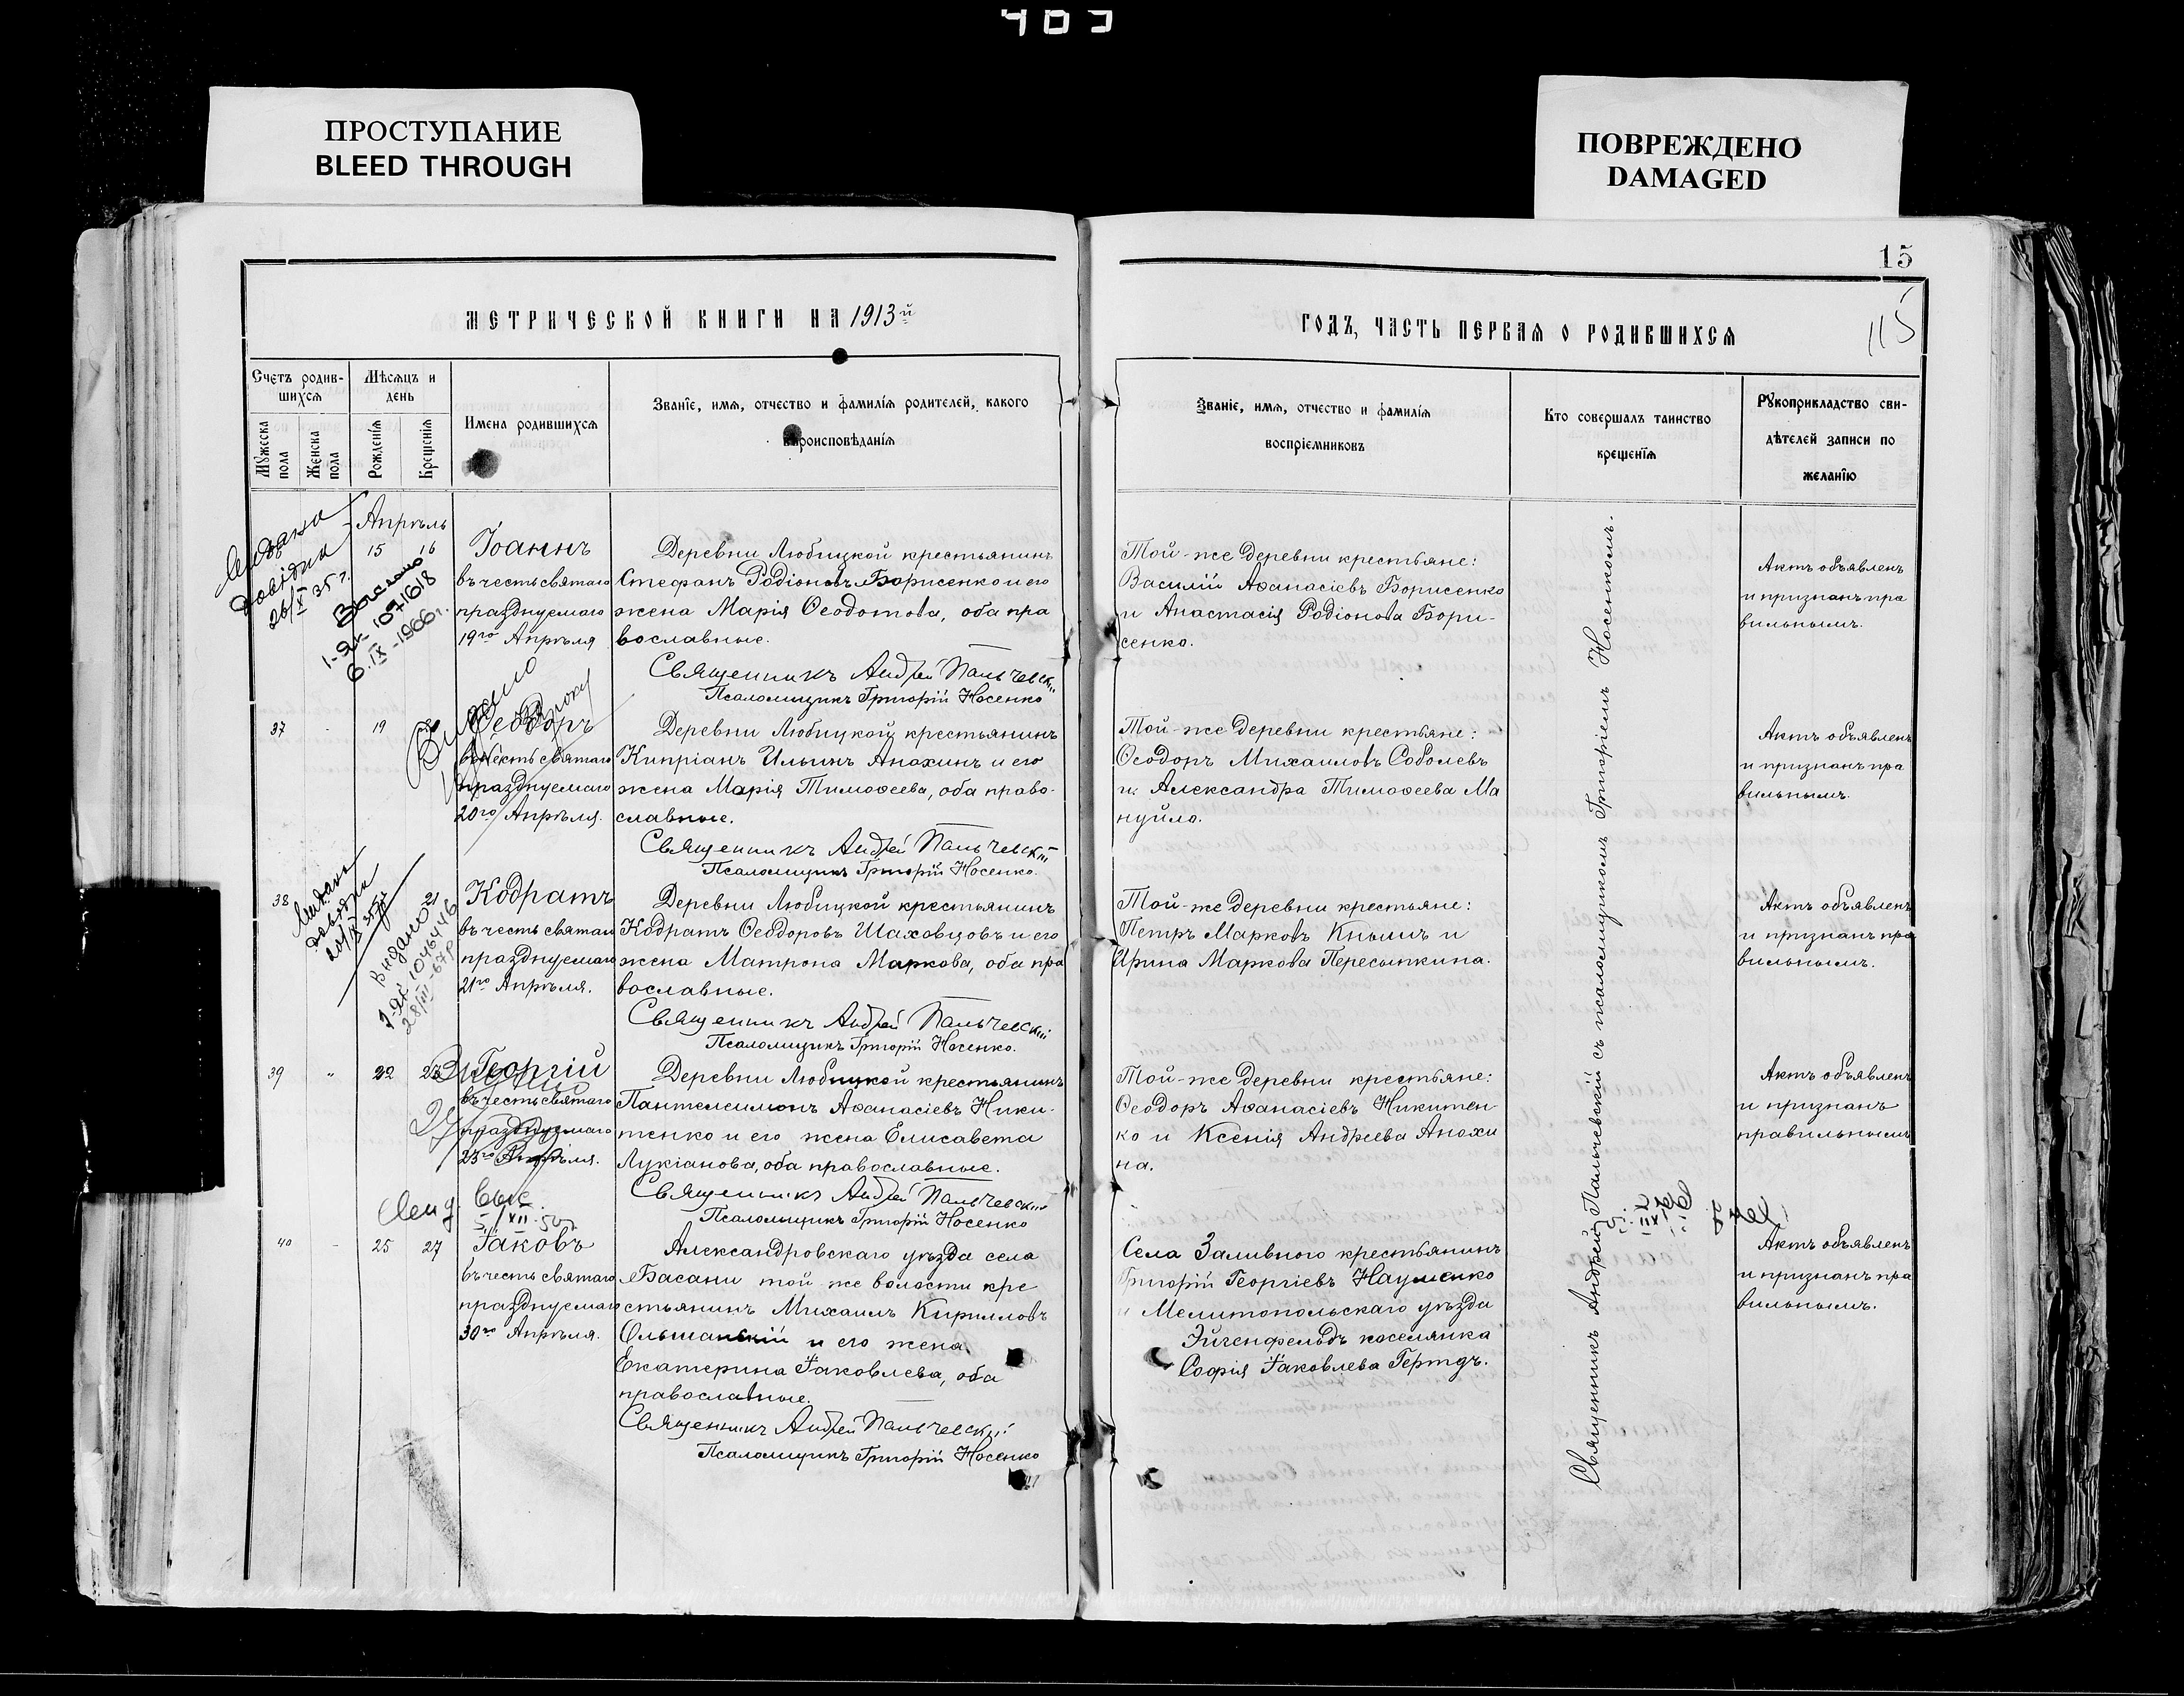 403
ПРОСТУПАНИЕ
BLEED THROUGH
ПОВРЕЖДЕНО
DAMAGED
МЕТРИЧЕСКОЙ КНИГИ НА 1913й
Счетъ родив-
шихся
Мужеска пола
Женска пола
Мѣсяцъ и
день
Рожденія
Крещенія
Имена родившихся
Званіе, имя, отчество и фамилія родителей, какого
вѣроисповѣданія
Видана
довідка
26/X 35 г.
Выслано
1-ЯК 071618
6.IX-1966г.
Апрѣль
15 16
Іоаннъ
въ честь святаго
празднуемаго
19го Апрѣля
Деревни Любицкой крестьянинъ
Стефанъ Родіоновъ Борисенко и его
жена Марія Ѳеодотова, оба пра
вославные.
Священникъ Андрей Пальчевскій
Псаломщикъ Григорій Носенко
37 - 19
Ѳеодоръ
въ честь святаго
празднуемаго
20го Апрѣля.
Деревни Любицкой крестьянинъ
Кипріанъ Ильинъ Анохинъ и его
жена Марія Тимоѳеева, оба право-
славные.
Священникъ Андрей Пальчевскій
Псаломщикъ Григорій Носенко.
Видана
довідка
Видано
1046446
28/III-67р
38 21
Кодратъ
въ честь святаго
празднуемаго
21го Апрѣля.
Деревни Любицкой крестьянинъ
Кодратъ Ѳеодоровъ Шаховцовъ и его
жена Матрона Маркова, оба пра
вославные.
Священникъ Андрей Пальчевскій
Псаломщикъ Григорій Носенко.
39 " 22 23
Георгій
въ честь святаго
празднуемаго
23го Апрѣля.
Деревни Любицкой крестьянинъ
Пантелеимонъ Аѳанасіевъ Ники-
тенко и его жена Елисавета
Лукіанова, оба православные.
Священникъ Андрей Пальчевскій
Псаломщикъ Григорій Носенко
40 - 25 27
Іаковъ
въ честь святаго
празднуемаго
30го Апрѣля.
Александровскаго уѣзда села
Басани той же волости кре
стьянинъ Михаилъ Кирилловъ
Ольшанскій и его жена
Екатерина Іаковлева, оба
православные.
Священникъ Андрей Пальчевскій
Псаломщикъ Григорій Носенко
15
115
ГОДЪ, ЧАСТЬ ПЕРВАЯ О РОДИВШИХСЯ
Званіе, имя, отчество и фамилія
воспріемниковъ
Кто совершалъ таинство
крещенія
Рукоприкладство сви-
дѣтелей записи по
желанію
Той-же деревни крестьяне:
Василій Аѳанасіевъ Борисенко
и Анастасія Родіонова Бори-
сенко.
Актъ объявленъ
и признанъ пра
вильнымъ.
Той-же деревни крестьяне:
Ѳеодоръ Михаиловъ Соболевъ
и Александра Тимоѳеева Ма
нуйло.
Актъ объявленъ
и признанъ пра
вильнымъ.
Той-же деревни крестьяне:
Петръ Марковъ Кнышъ и
Ирина Маркова Пересыпкина.
Актъ объявленъ
и признанъ пра
вильнымъ.
Той-же деревни крестьяне:
Ѳеодоръ Аѳанасіевъ Никитен
ко и Ксенія Андреева Анохи
на.
Актъ объявленъ
и признанъ
правильнымъ
Села Заливного крестьянинъ
Григорій Георгіевъ Науменко
и Мелитопольскаго уѣзда
Эйгенфельдъ поселянка
Софія Іаковлева Гертдъ.
Актъ объявленъ
и признанъ пра
вильнымъ.
Священникъ Андрей Пальчевскій съ псаломщикомъ Григоріемъ Носенкомъ.